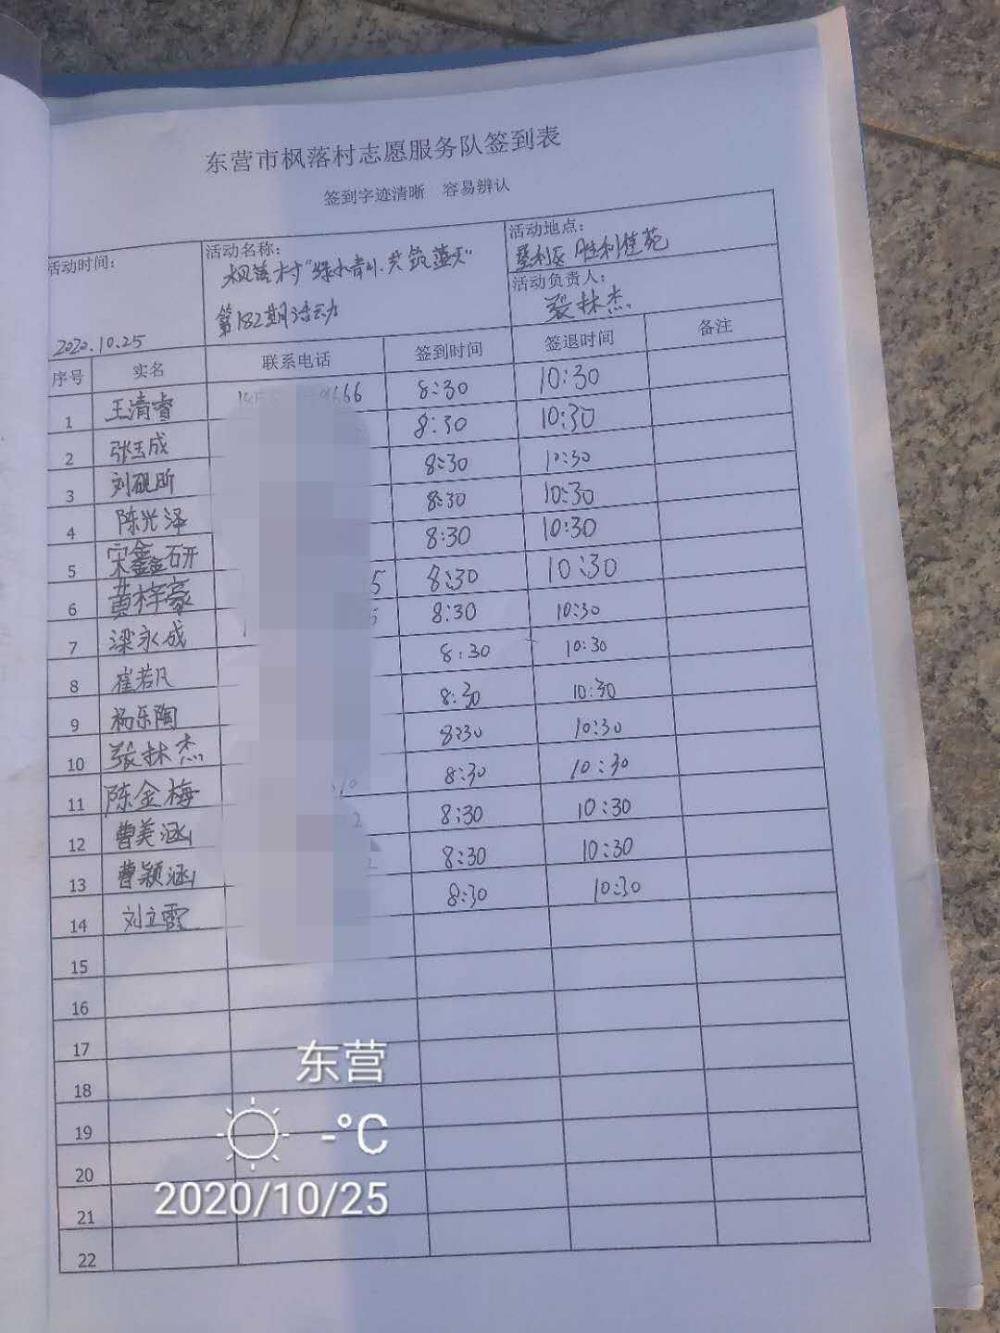 东营市枫落村志愿服务队签到表
签到字迹清晰 容易辨认
活动时间: 2020.10.25
活动名称: 枫落村"绿水青山、共筑蓝天"
第182期活动
活动地点: 垦利区 胜利佳苑
活动负责人: 张林杰
序号 实名 联系电话 签到时间 签退时间 备注
1 王清睿 8:30 10:30
2 张玉成 8:30 10:30
3 刘砚昕 8:30 10:30
4 陈光泽 8:30 10:30
5 宋鑫研 8:30 10:30
6 黄梓豪 5 8:30 10:30
7 梁永成 8:30 10:30
8 崔若凡 8:30 10:30
9 杨乐陶 8:30 10:30
10 张林杰 8:30 10:30
11 陈金梅 8:30 10:30
12 曹美涵 8:30 10:30
13 曹颖涵 8:30 10:30
14 刘立霞 8:30 10:30
15
16
17
18
19
20
21
22
东营
-°C
2020/10/25